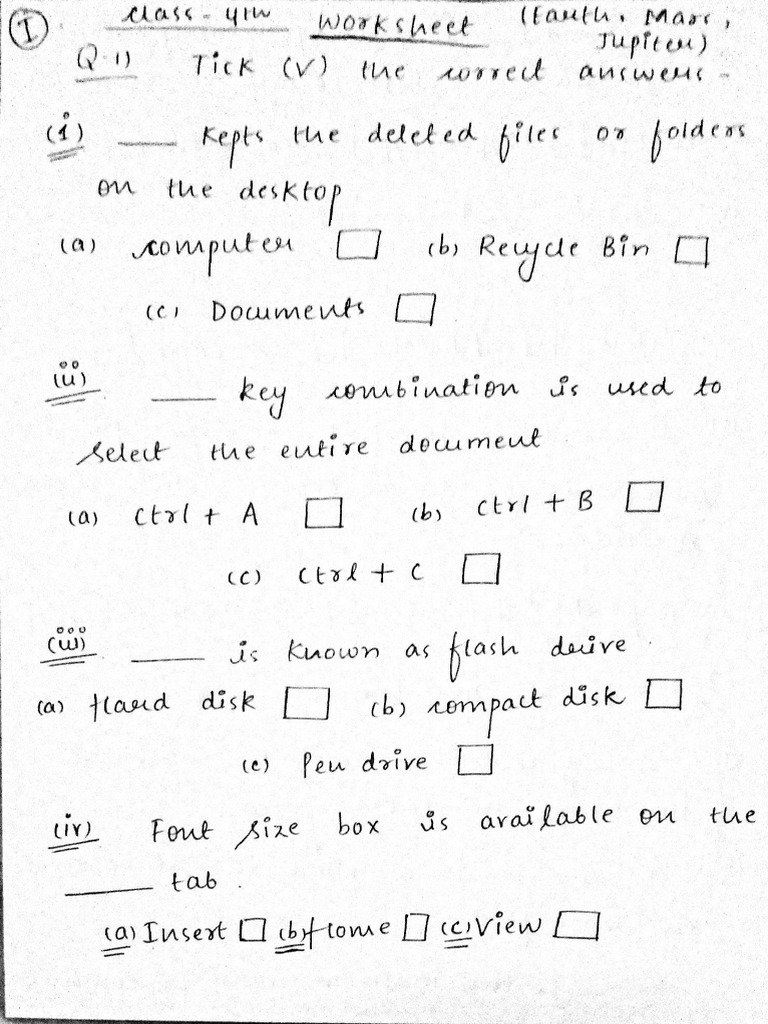 I. Class - 4th Worksheet (Earth, Mars,
Jupiter)
Q.1) Tick (V) the correct answers -
(i) ____ Kepts the deleted files or folders
on the desktop
(a) computer □ (b) Recycle Bin □
(c) Documents □
(ii) ____ key combination is used to
select the entire document
(a) Ctrl + A □ (b) Ctrl + B □
(c) Ctrl + C □
(iii) ____ is known as flash drive.
(a) Hard disk □ (b) compact disk □
(c) Pen drive □
(iv) Font size box is available on the
____ tab.
(a) Insert □ (b) Home □ (c) View □